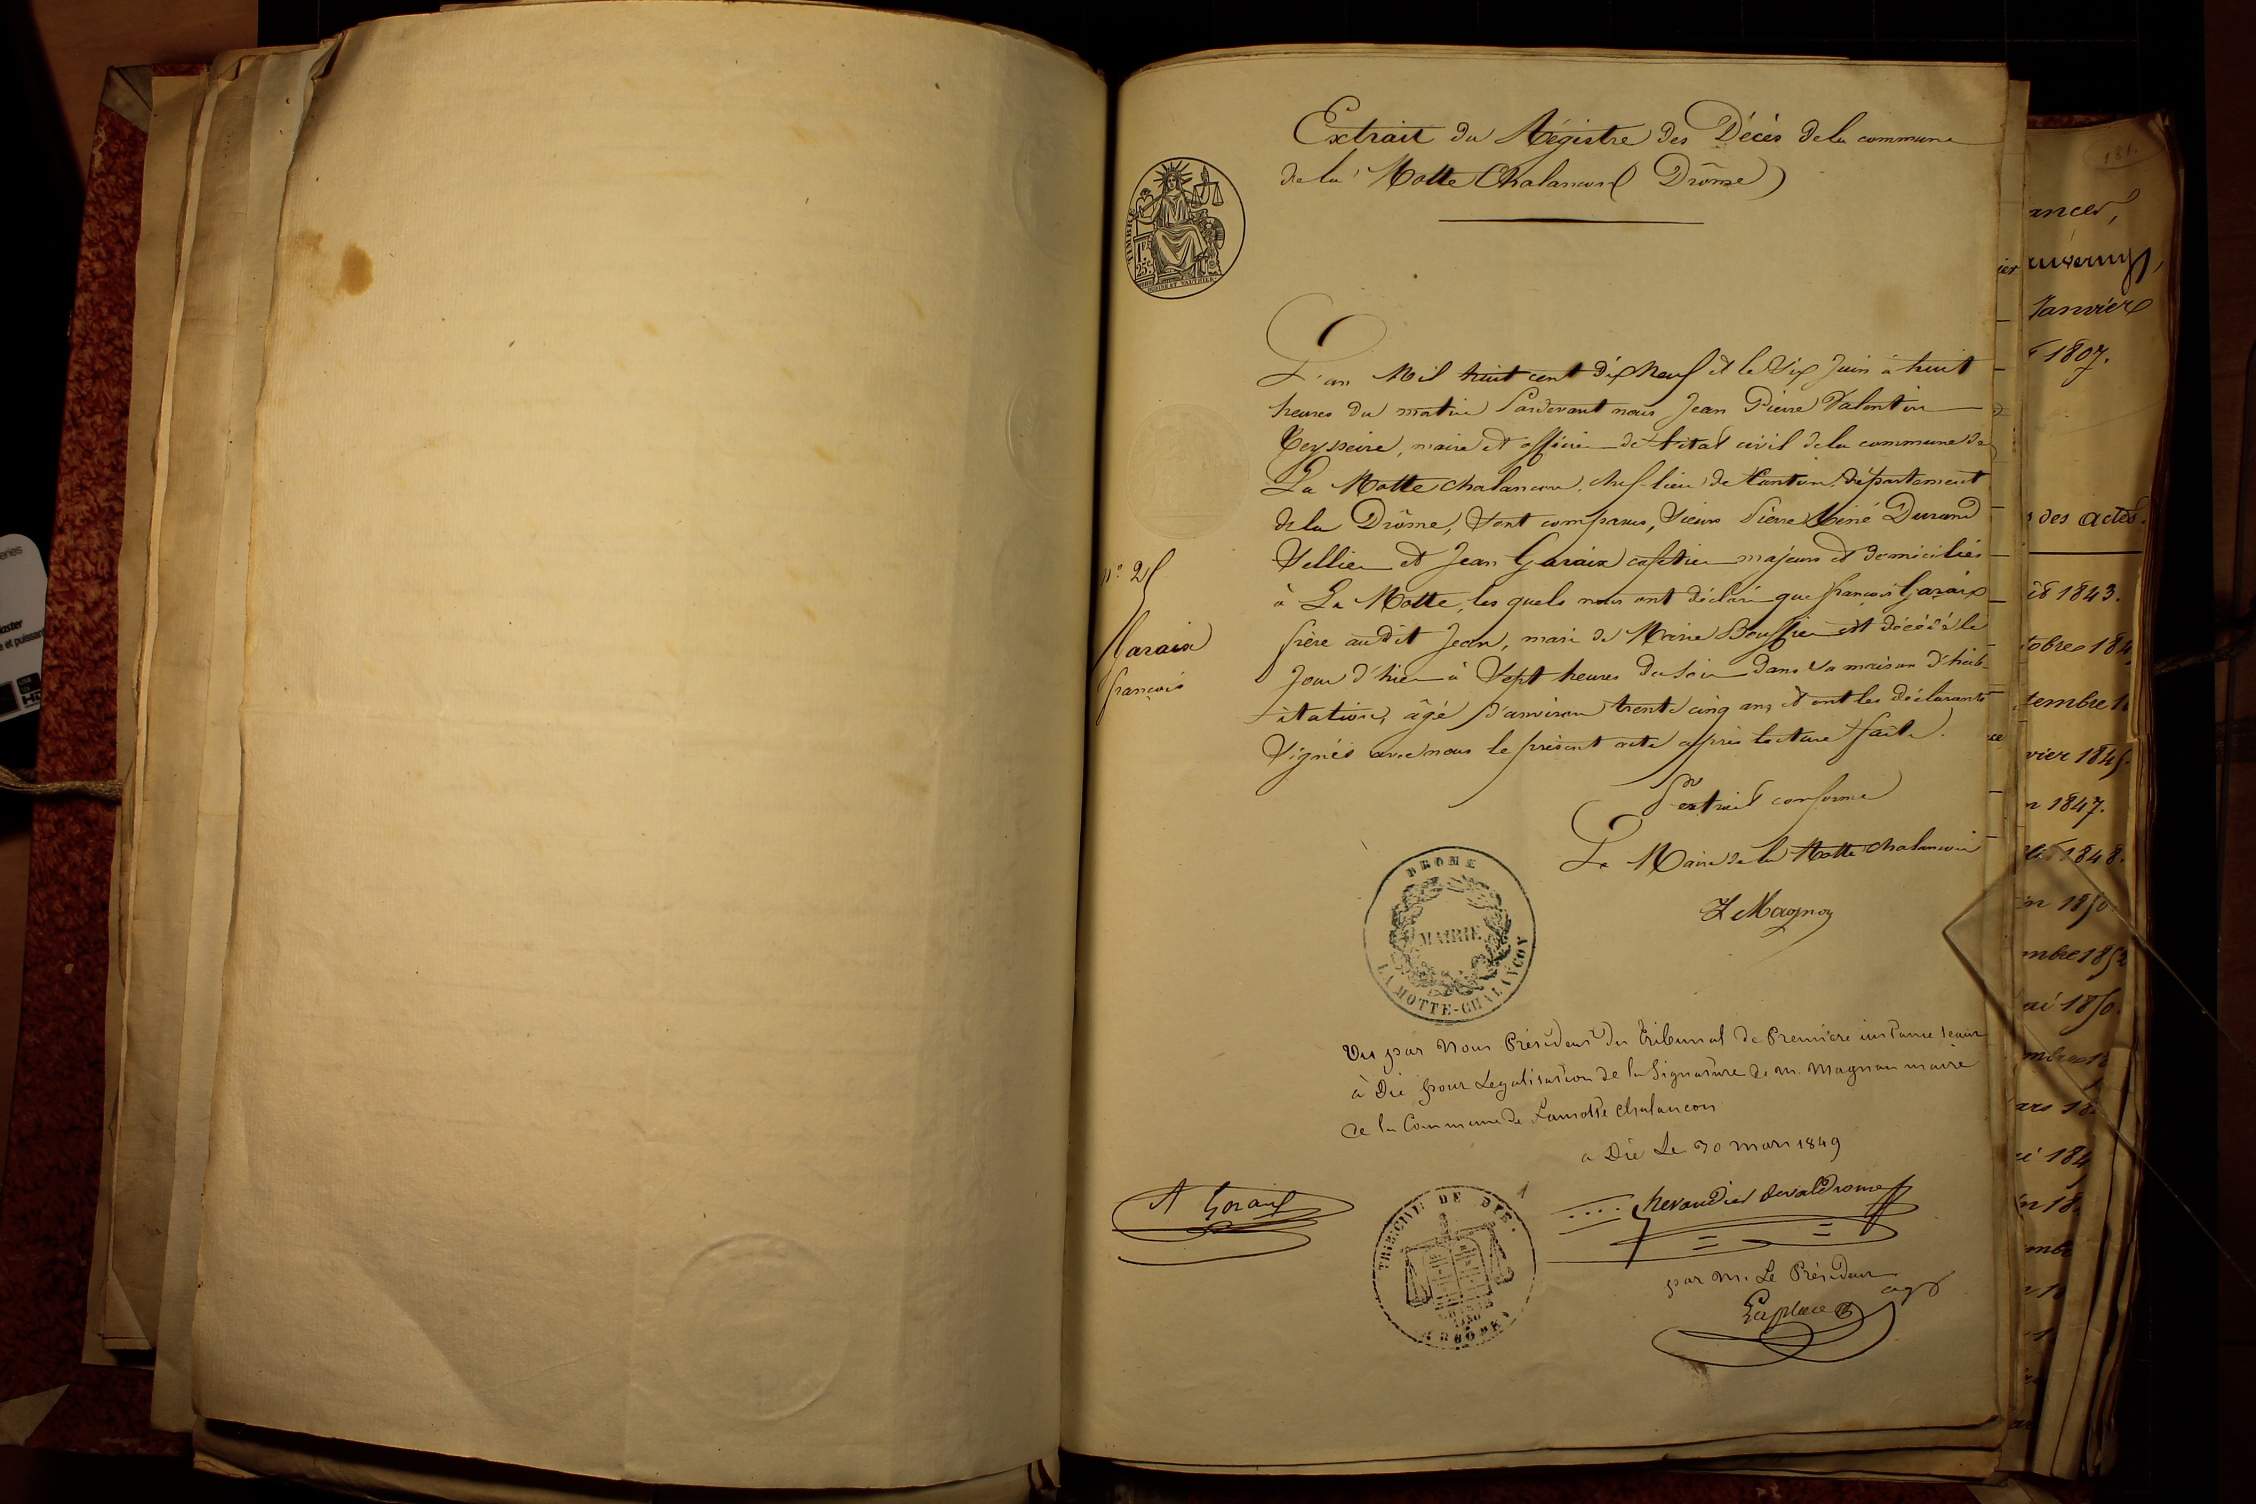 Extrait du Régistre des Décès de la commune
de la Motte Chalancon (Drôme)
TIMBRE
1 F.
25 c.
L'an Mil huit cent dix neuf et le six Juin à huit
heures du matin Pardevant nous Jean Pierre Valentin
Teysseire, maire et officier de l'état civil de la commune de
La Motte chalancon, chef-lieu de Canton, département
de la Drôme, sont comparus, sieurs Pierre René Durand
Sellier et Jean Garaix cafetier majeurs et domiciliés
à La Motte, les quels nous ont déclaré que françois Garaix
frère audit Jean, mari de Marie Bouffier est décédé le
Jour d'hier à Sept heures du soir dans sa maison d'hab-
itation, âgé d'environ trente cinq ans, et ont les déclarants
Signés avec nous le présent acte après lecture faite.
n° 25
Garaix
françois
Pr extrait conforme
Le Maire de la Motte chalancon
Magnan
DROME
MAIRIE
LA MOTTE-CHALANCON
Vu par Nous Président du Tribunal de Première instance séant
à Die pour Legalisation de la Signature de m. Magnan maire
de la Commune de Lamotte chalancon
a Die Le 30 mars 1849
A Garaix
TRIB. CIVIL DE DIE.
(DROME)
Chevandier devaldrome
par M. Le Président
Laplace
181.
ances,
Janvier
1807.
des actes.
1843.
tobre 184
tembre 1
vier 1845.
1847.
1848.
1850
mbre 1852
ai 1850.
ars 18
184
18